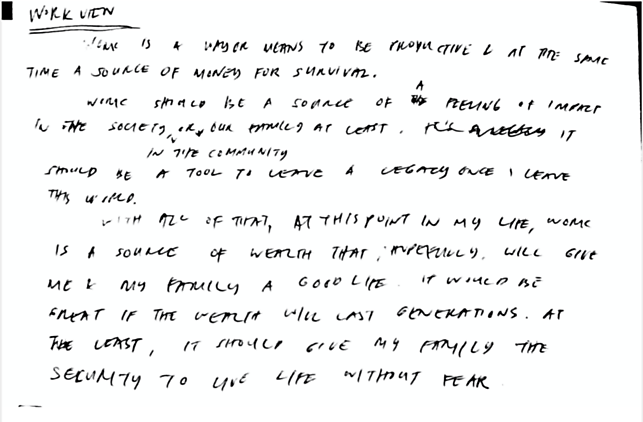 WORK VIEW
WORK IS A MAJOR MEANS TO BE PRODUCTIVE & AT THE SAME
TIME A SOURCE OF MONEY FOR SURVIVAL.
WORK SHOULD BE A SOURCE OF A FEELING OF IMPACT
IN THE SOCIETY, OR, OUR FAMILY AT LEAST. IT
IN THE COMMUNITY
SHOULD BE A TOOL TO LEAVE A LEGACY ONCE I LEAVE
THIS WORLD.
WITH ALL OF THAT, AT THIS POINT IN MY LIFE, WORK
IS A SOURCE OF WEALTH THAT, HOPEFULLY, WILL GIVE
ME & MY FAMILY A GOOD LIFE. IT WOULD BE
GREAT IF THE WEALTH WILL LAST GENERATIONS. AT
THE LEAST, IT SHOULD GIVE MY FAMILY THE
SECURITY TO LIVE LIFE WITHOUT FEAR